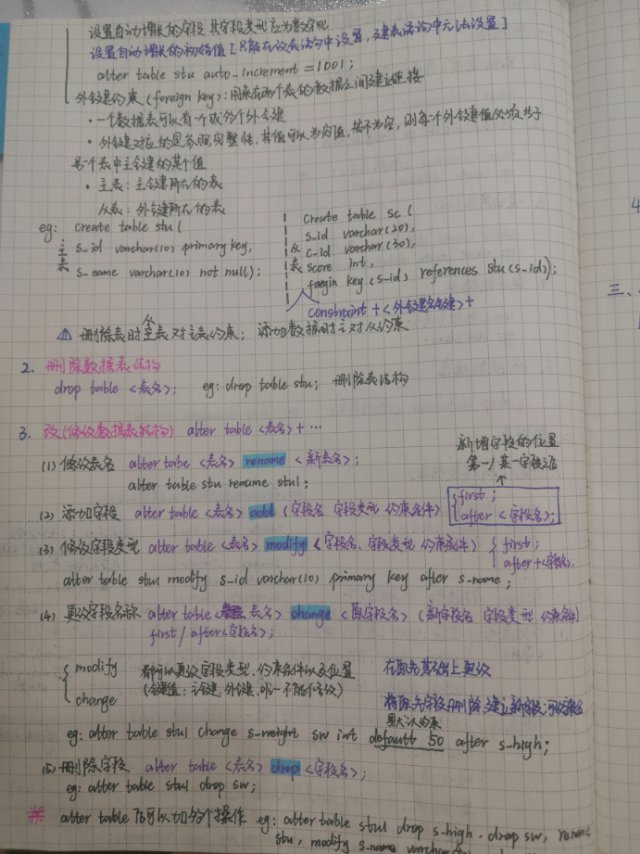 设置自动增长的字段 其字段类型应为数字型
设置自动增长的初始值 [只能在改表语句中设置，建表语句中无法设置]
alter table stu auto_increment = 1001;
外键约束 (foreign key)：用来在两个表的数据之间建立链接
· 一个数据表可以有一个或多个外键
· 外键对应的是参照完整性，其值可以为空值，若不为空，则每个外键值必须等于
另一个表中主键的某个值
· 主表：主键所在的表
从表：外键所在的表
eg: create table stu (
主表
s_id varchar(10) primary key,
s_name varchar(10) not null);
create table sc (
s_id varchar(20),
从表
c_id varchar(30),
score int,
foregin key (s_id) references stu(s_id);
constraint + <外键名>+
⚠ 删除表时 从表对主表约束；添加数据时主对从约束
2. 删除数据表结构
drop table <表名>; eg: drop table stu; 删除表结构
3. 改(修改数据表结构) alter table <表名> + …
新增字段的位置
第一/某一字段之后
(1) 修改表名 alter table <表名> rename <新表名>;
alter table stu rename stu1;
(2) 添加字段 alter table <表名> add (字段名 字段类型 约束条件) { first;
after <字段名>;
(3) 修改字段类型 alter table <表名> modify <字段名 字段类型 约束条件) { first;
after+<字段名>.
alter table stu1 modify s_id varchar(10) primary key after s_name;
(4) 更改字段名称 alter table <表名> change <原字段名> (新字段名 字段类型 约束条件)
first / after<字段名>;
{ modify 都可以更改字段类型、约束条件以及位置 在原先基础上更改
change (键值：主键、外键、唯一 不能修改) 将原先字段删除，建立新字段
默认约束
eg: alter table stu1 change s_weight sw int default 50 after s_high;
(5) 删除字段 alter table <表名> drop <字段名>;
eg: alter table stu1 drop sw;
# alter table 可以加多个操作 eg: alter table stu1 drop s_high, drop sw, rename
stu, modify s_name varchar